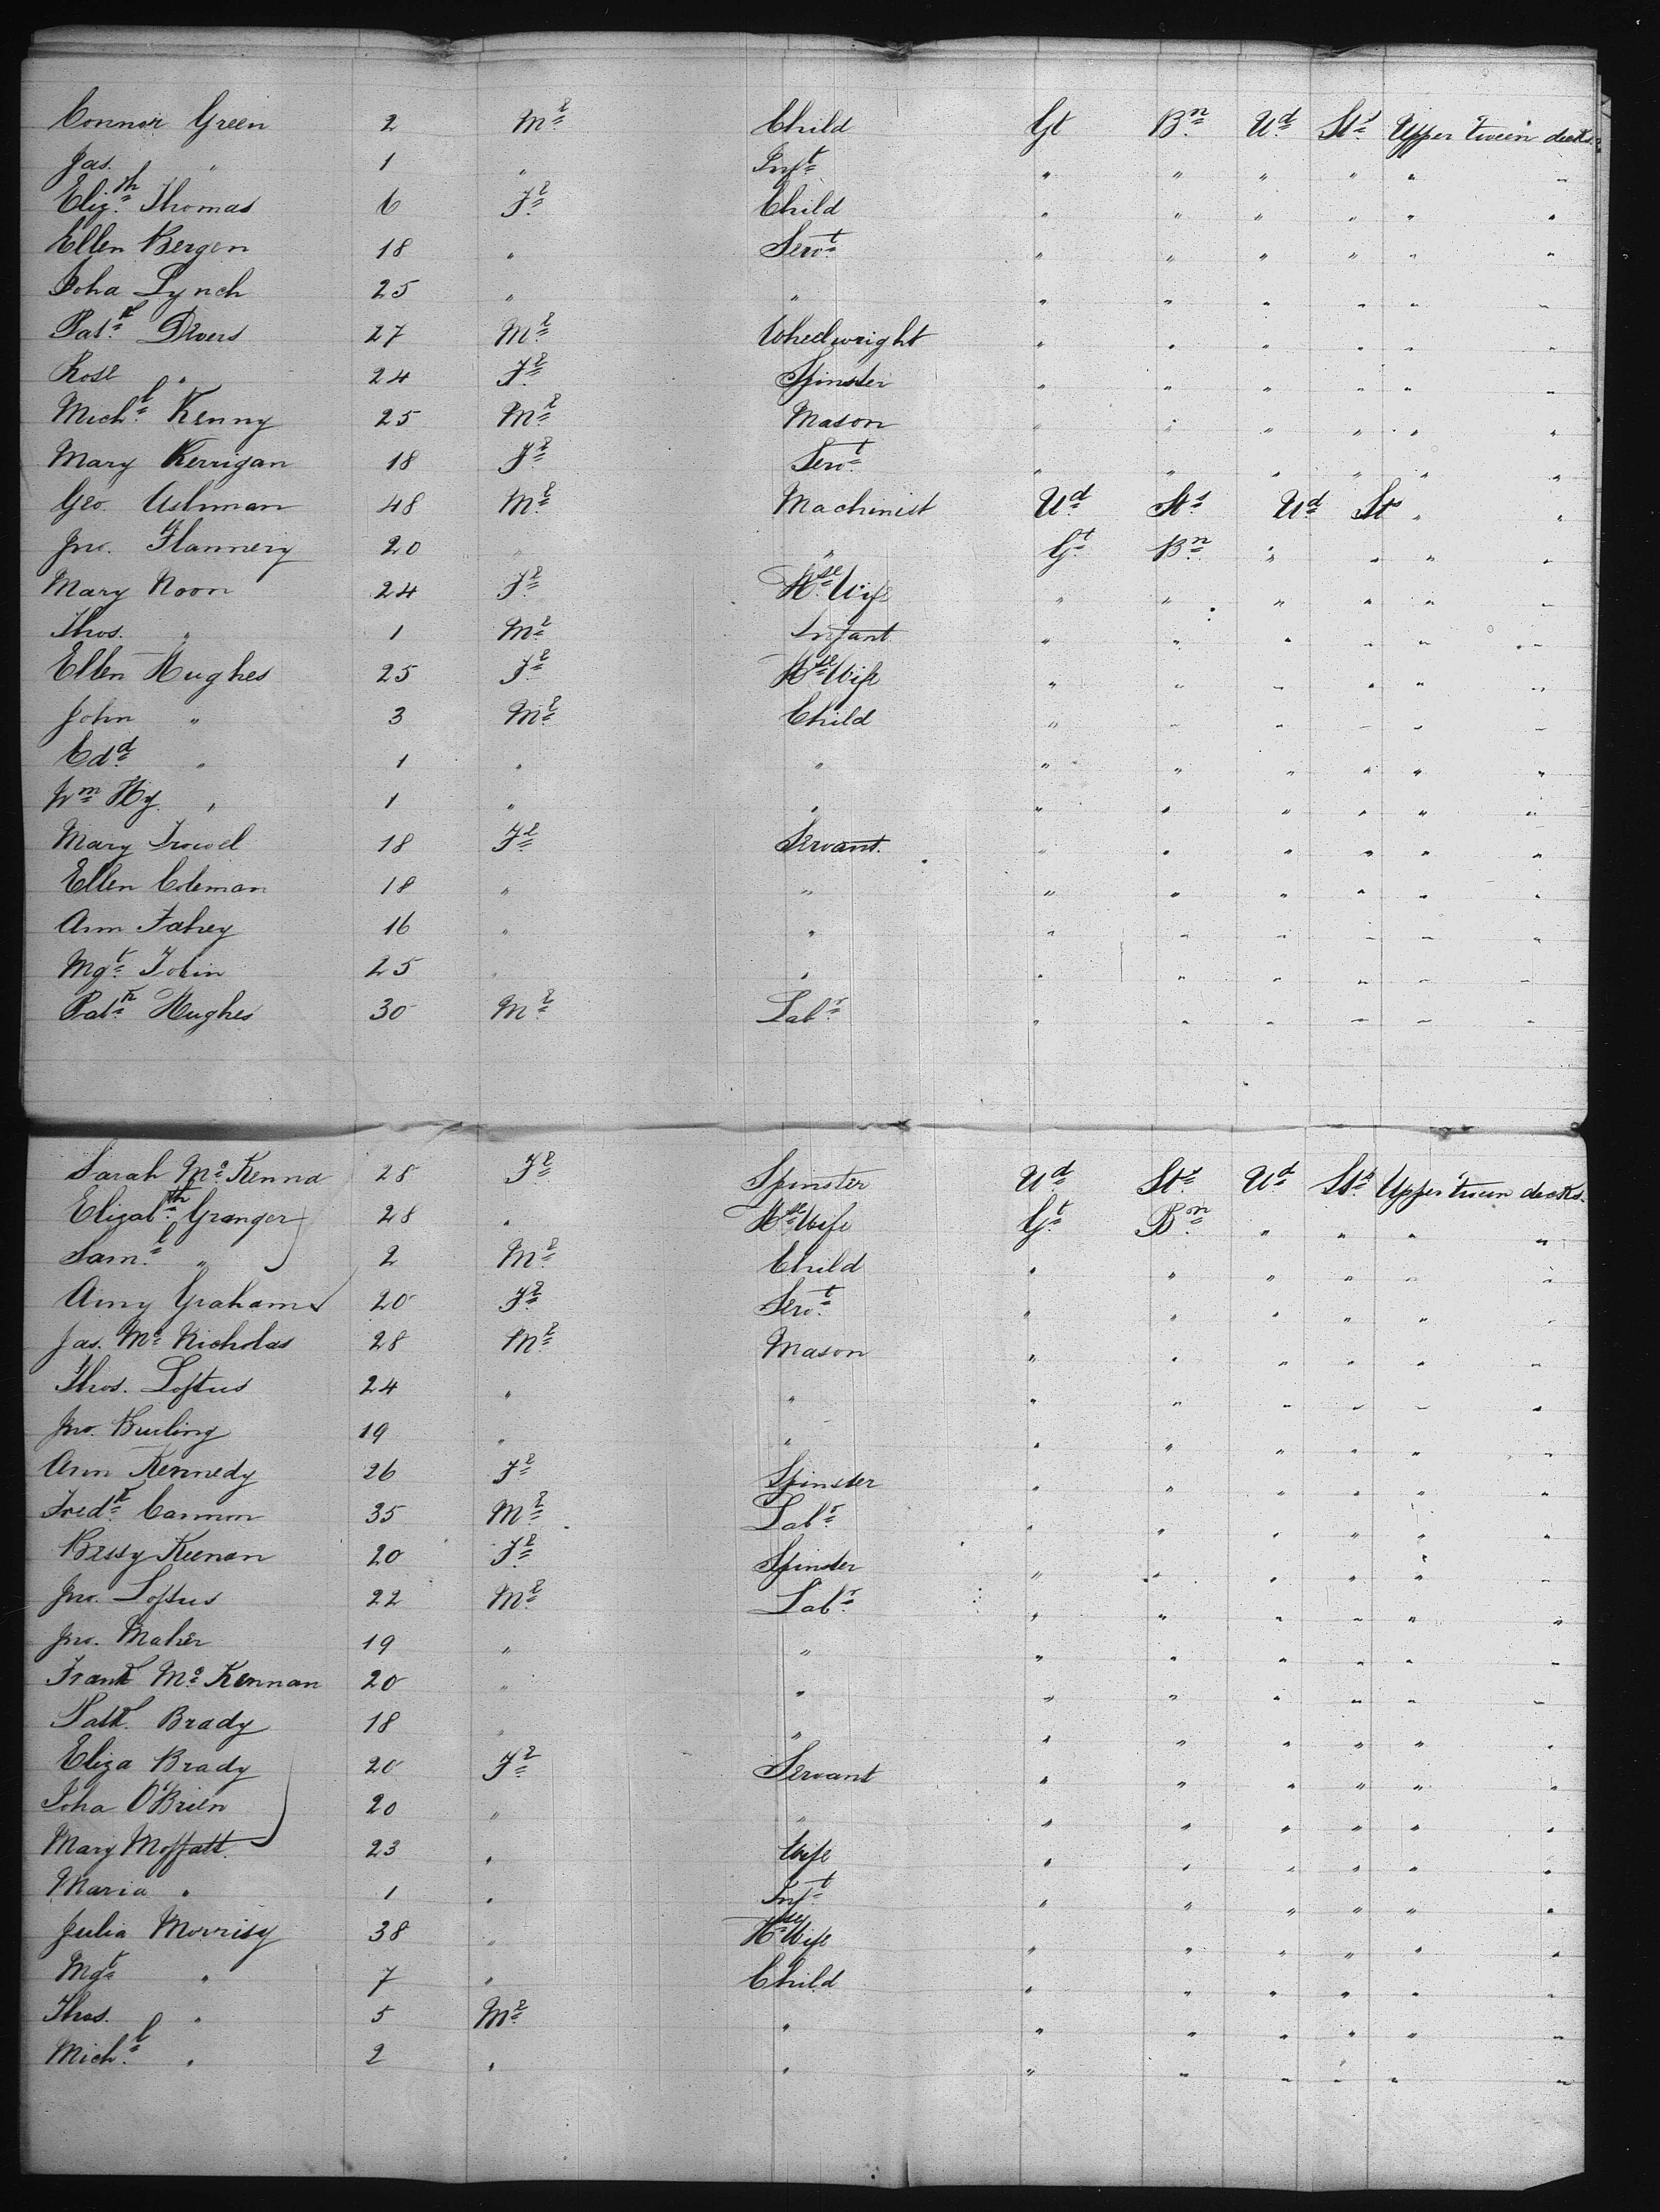 Connor Green 2 Mle Child Gt Bn Ud Sts Upper 'tween decks
Jas. " 1 " Inft " " " " " "
Elizth Thomas 6 Fle Child " " " " " "
Ellen Bergen 18 " Servt " " " " " "
Joha Lynch 25 " " " " " " " "
Patk Divers 27 Mle Wheelwright " " " " " "
Rose " 24 Fle Spinster " " " " " "
Michl Kenny 25 Mle Mason " " " " " "
Mary Kerrigan 18 Fle Servt " " " " " "
Geo. Ashman 48 Mle Machinist Ud Sts Ud Sts " "
Jno. Flannery 20 " " Gt Bn " " " "
Mary Noon 24 Fle Hse Wife " " " " " "
Thos. " 1 Mle Infant " " " " " "
Ellen Hughes 25 Fle Hse Wife " " " " " "
John " 3 Mle Child " " " " " "
Edd " 1 " " " " " " " "
Wm Hy. " 1 " " " " " " " "
Mary Trowel 18 Fle Servant " " " " " "
Ellen Coleman 18 " " " " " " " "
Ann Fahey 16 " " " " " " " "
Mgt Tobin 25 " " " " " " " "
Patk Hughes 30 Mle Labr " " " " " "
Sarah Mc Kenna 28 Fle Spinster Ud Sts Ud Sts Upper 'tween decks
Elizabth Granger 28 " Hse Wife Gt Bn " " " "
Saml " 2 Mle Child " " " " " "
Amy Graham 20 Fle Servt " " " " " "
Jas. Mc Nicholas 28 Mle Mason " " " " " "
Thos. Loftus 24 " " " " " " " "
Jno. 19 " " " " " " " "
Ann Kennedy 26 Fle Spinster " " " " " "
Fredk Cannon 35 Mle Labr " " " " " "
Bessy Keenan 20 Fle Spinster " " " " " "
Jno. Loftus 22 Mle Labr " " " " " "
Jno. Maher 19 " " " " " " " "
Frank Mc Kennan 20 " " " " " " " "
Patk. Brady 18 " " " " " " " "
Eliza Brady 20 Fle Servant " " " " " "
Joha O'Brien 20 " " " " " " " "
Mary Moffatt 23 " Wife " " " " " "
Maria " 1 " Inft " " " " " "
Julia Morrisy 38 " Hse Wife " " " " " "
Mgt " 7 " Child " " " " " "
Thos. " 5 Mle " " " " " " "
Michl " 2 " " " " " " " "